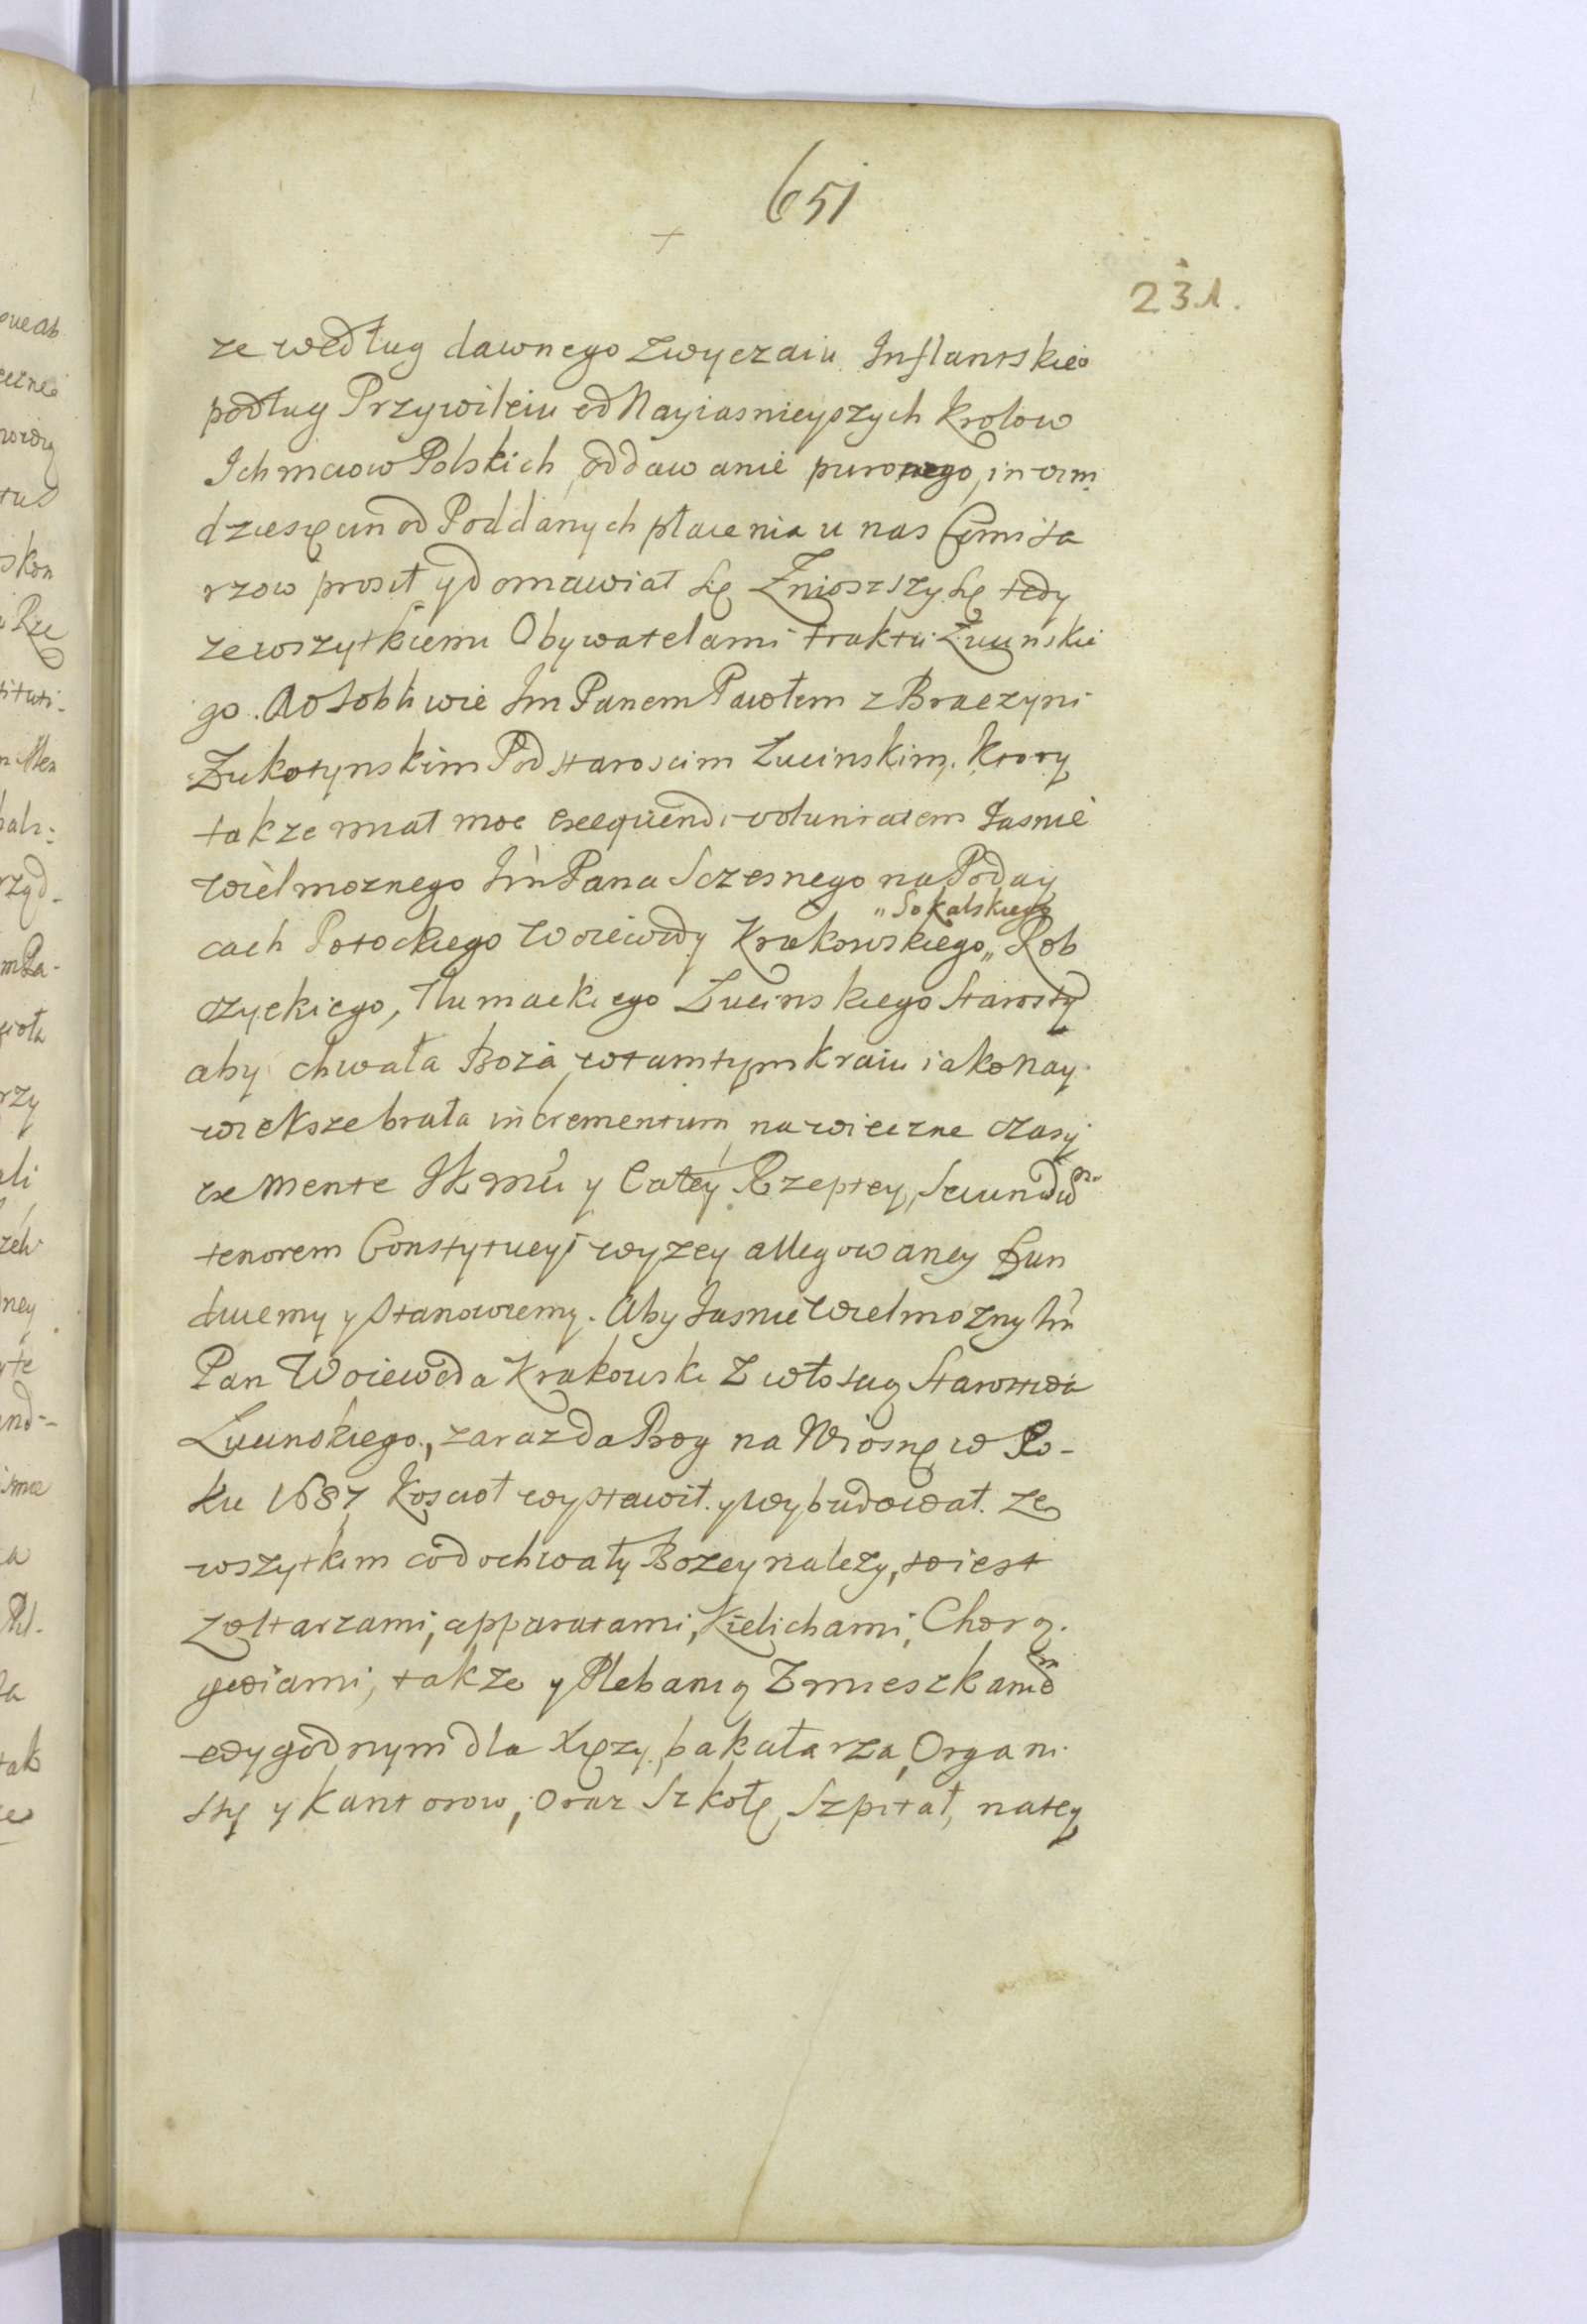 651
231.
ze według dawnego zwyczaiu Inflantskieo
podług Przywileiu od Nayiasnieyszych Krolow
Ichmciow Polskich, oddawanie purownego, in vim
dziesęcin od Poddanych płacenia u nas Comisa
rzow prosił y domawiał sę Znioszszy sę tedy
ze wszytkiemi Obywatelami traktu Lucinskie
go. A osobliwie Im Panem Pawłem z Braczyni
Zukotynskim Podstaroscim Lucinskim. Ktory
takze miał moc exequendi voluntatem Jasnie
Wielmoznego Im Pana Sczesnego na Poday
cach Potockiego Woiewody Krakowskiego „ Rob
„ Sokalskiego
czyckiego, Tlumackiego Lucinskiego Starosty
aby chwała Boża w tamtym kraiu iako nay
większe brała incrementum, na wieczne czasy
ex mente IKmci y Całey Rzeptey, Secundum
tenorem Constytucyi wyzey allegowaney Fun
duiemy y stanowiemy. Aby Jasnie Wielmozny Im
Pan Woiewoda Krakowski z włosci Starostwa
Lucinskiego, zaraz da Bog na Wiosnę w Ro-
ku 1687 Koscioł wystawił y wybudował. Ze
wszytkim co do chwały Bozey nalezy, to iest
z ołtarzami, apparatami, Kielichami, Chorą.
gwiami, takze y Plebanią z mieszkaniem
wygodnym dla Xięzy, bakałarza, Organi
sty y Kantorow, oraz Szkołę Szpitał, na tey